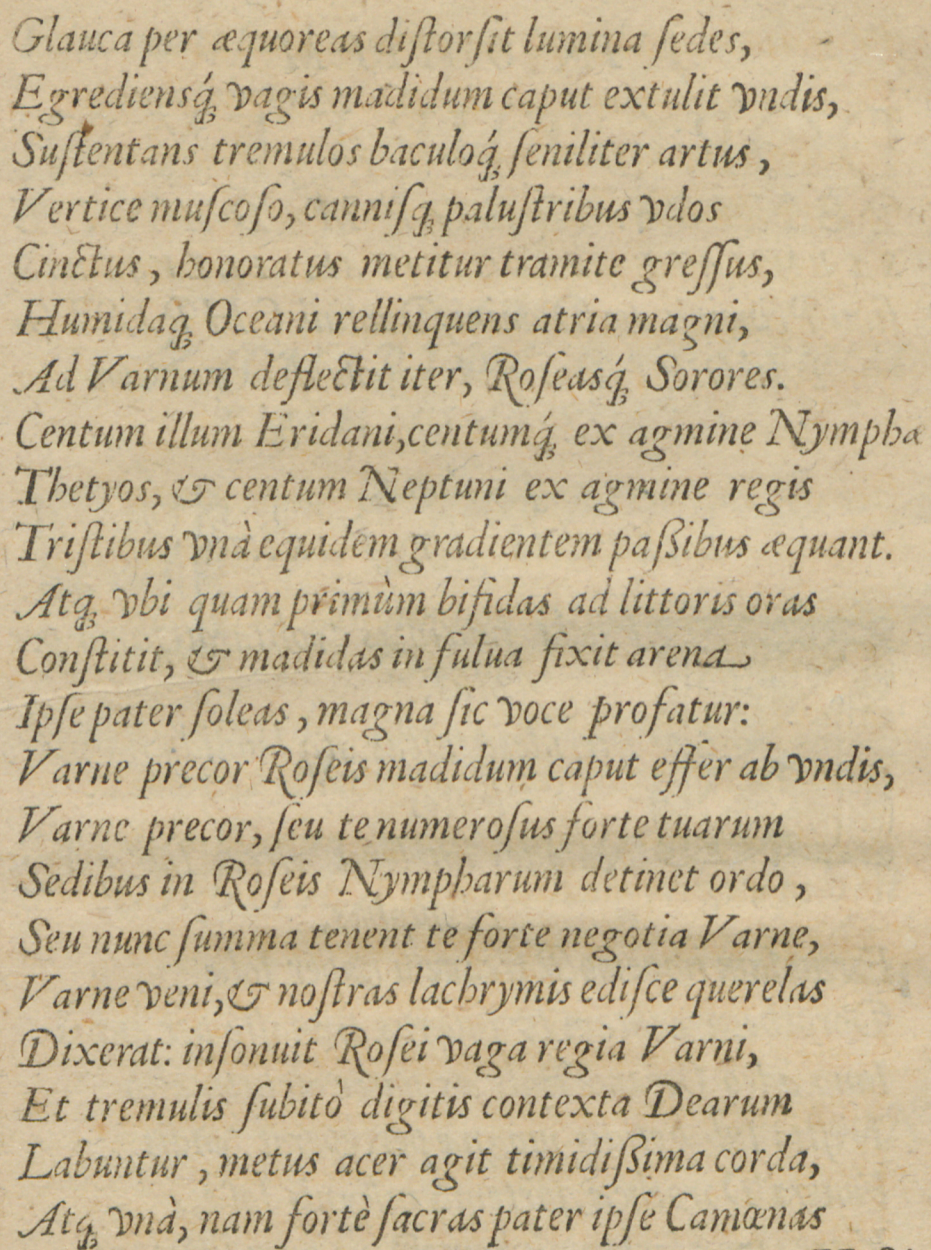 Glauca per æquoreas diſtorſit lumina ſedes,
Egrediensq́; vagis madidum caput extulit vndis,
Suſtentans tremulos baculoq́; ſeniliter artus,
Vertice muſcoſo, canniſq; paluſtribus vdos
Cinctus, honoratus metitur tramite greſſus,
Humidaq; Oceani rellinquens atria magni,
Ad Varnum deflectit iter, Roſeasq́; Sorores.
Centum illum Eridani, centumq́; ex agmine Nymphæ
Thetyos, & centum Neptuni ex agmine regis
Triſtibus vnà equidem gradientem paßibus æquant.
Atq; vbi quam primùm bifidas ad littoris oras
Conſtitit, & madidas in fulua fixit arena
Ipſe pater ſoleas, magna ſic voce profatur:
Varne precor Roſeis madidum caput effer ab vndis,
Varne precor, ſeu te numeroſus forte tuarum
Sedibus in Roſeis Nympharum detinet ordo,
Seu nunc ſumma tenent te forte negotia Varne,
Varne veni, & noſtras lachrymis ediſce querelas
Dixerat: inſonuit Roſei vaga regia Varni,
Et tremulis ſubitò digitis contexta Dearum
Labuntur, metus acer agit timidißima corda,
Atq; vnà, nam fortè ſacras pater ipſe Camœnas